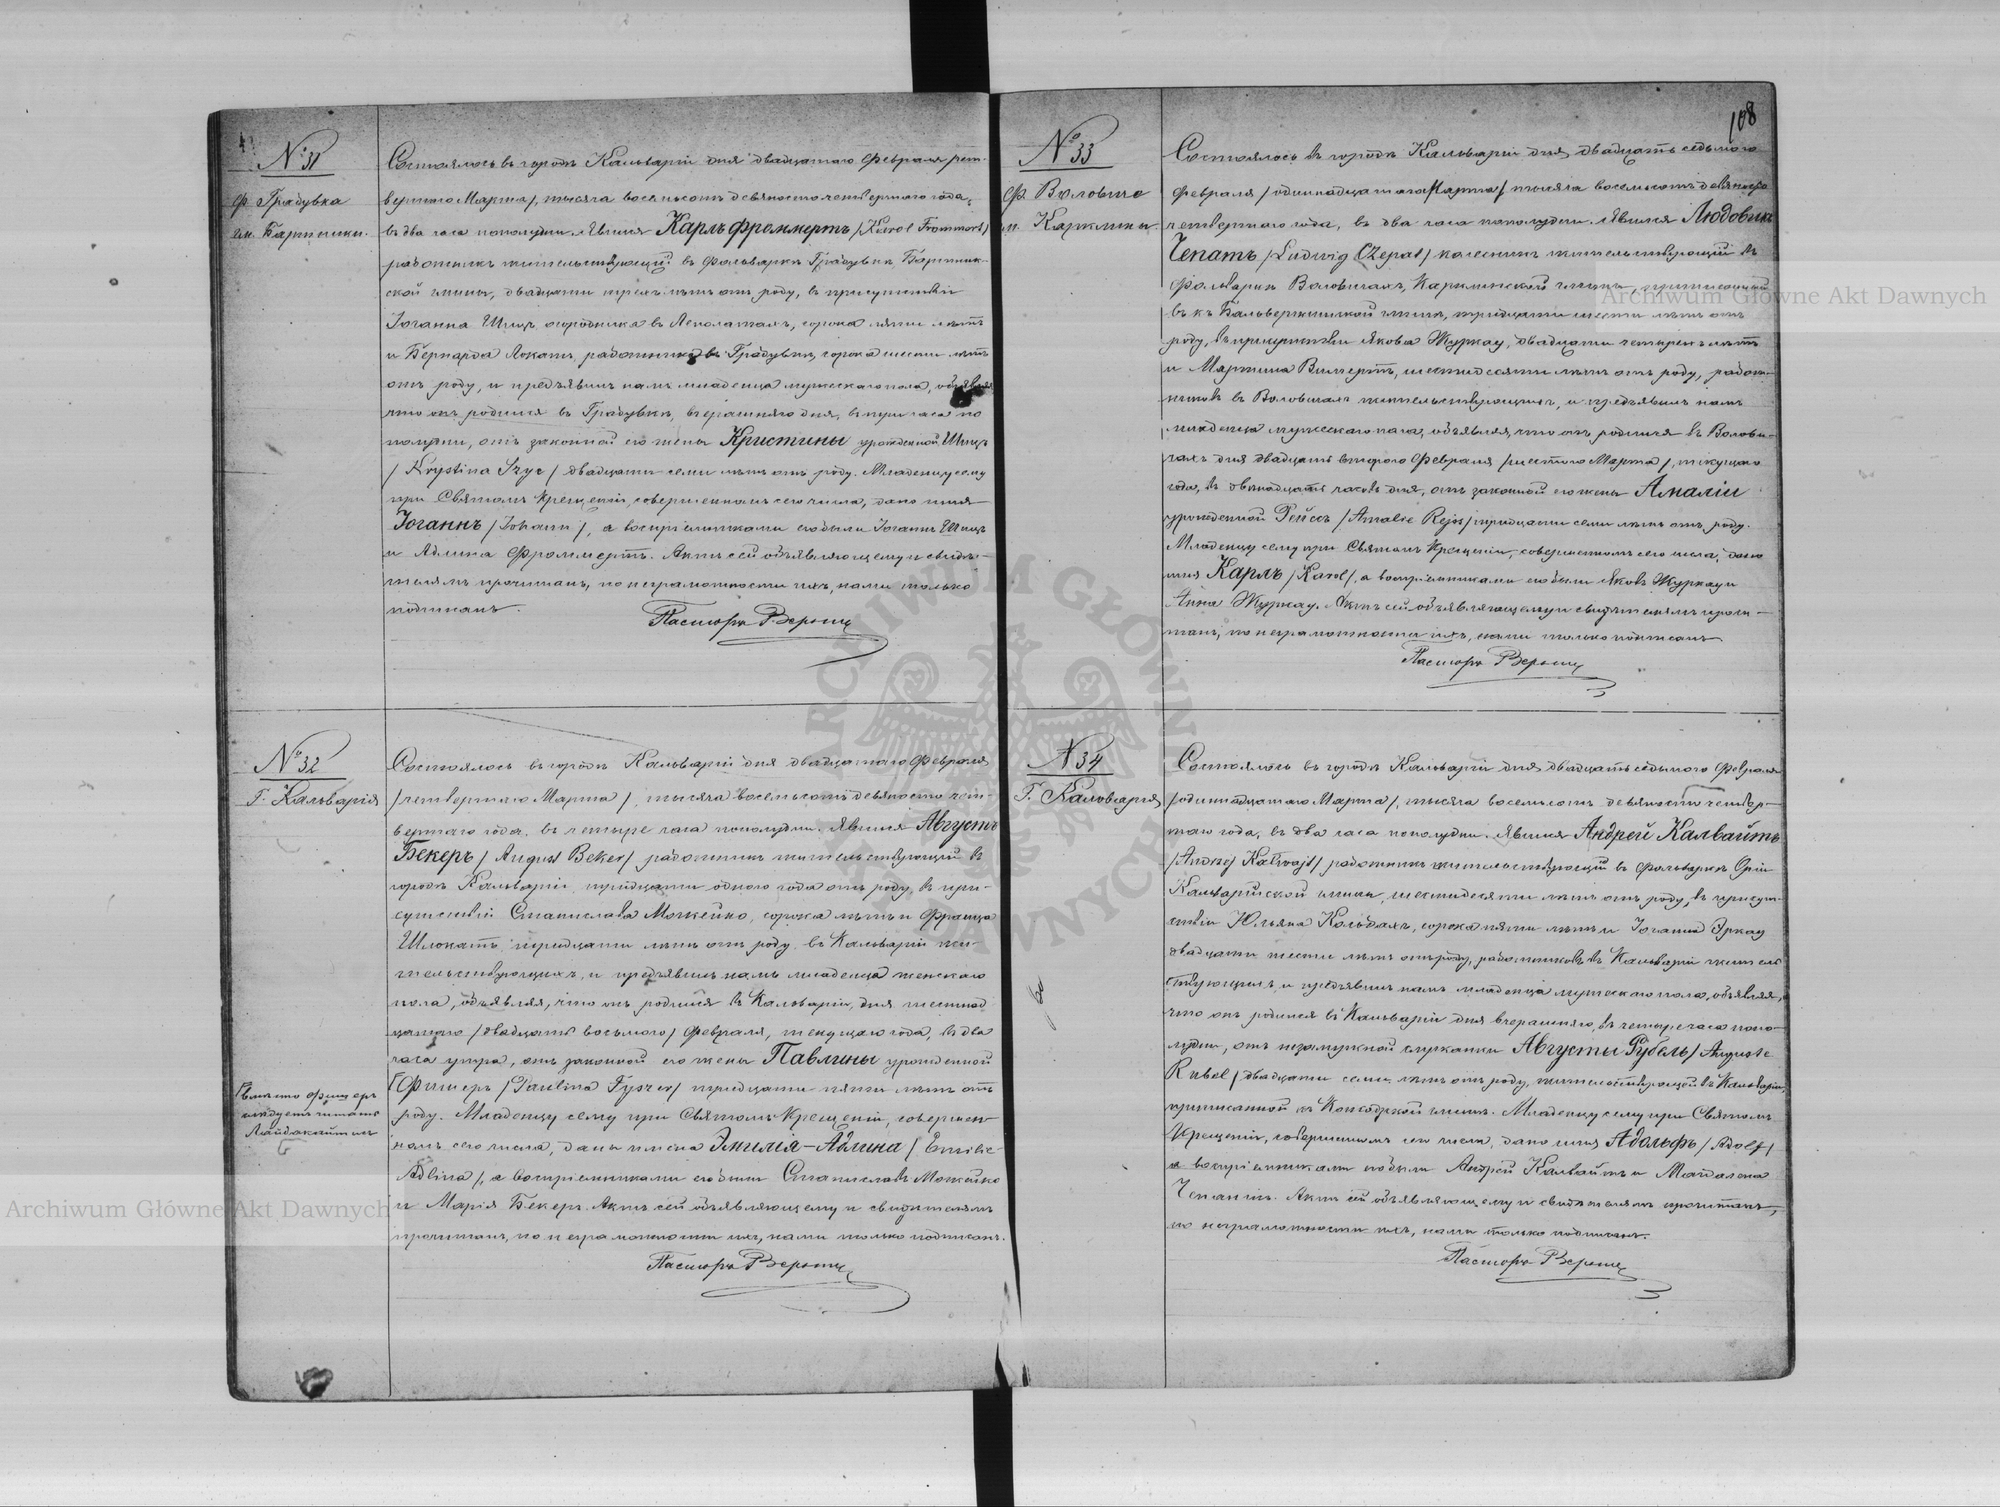 № 31
Ф. Градувка
гм. Бартники.
Состоялось въ городѣ Кальваріи дня двадцатаго Февраля /чет-
вертаго Марта/, тысяча восемьсотъ девяносто четвертаго года,
въ два часа пополудни. Явился Карлъ Фроммертъ /Karol Frommert/
работникъ жительствующій въ фольваркѣ Градувкѣ Бартник-
ской гмины, двадцати трехъ лѣтъ отъ роду, въ присутствіи
Іоганна Шицъ огородника въ сорока пяти лѣтъ
и Бернарда Локатъ, работника въ Градувкѣ, сорока шести лѣтъ
отъ роду, и предъявилъ намъ младенца мужескаго пола, объявляя
что онъ родился въ Градувкѣ, вчерашняго дня, въ три часа по
полудни, отъ законной его жены Кристины урожденной Шицъ
/Krystina Szyc/ двадцати семи лѣтъ отъ роду. Младенцу сему
при Святомъ Крещеніи, совершенномъ сего числа, дано имя
Іоганнъ /Johann/, а воспріемниками его были Іоганнъ Шицъ
и Адлина Фроммертъ. Актъ сей объявляющему и свидѣ-
телямъ прочитанъ, по неграмотности ихъ, нами только
подписанъ.
Пасторъ
№ 32
Г. Кальварія
Состоялось въ городѣ Кальваріи дня двадцатаго Февраля
/четвертаго Марта/, тысяча восемьсотъ девяносто чет-
вертаго года, въ четыре часа пополудни. Явился Августъ
Бекеръ /August Beker/ работникъ жительствующій въ
городѣ Кальваріи, тридцати одного года отъ роду, въ при-
сутствіи Станислава Можейко, сорока лѣтъ и Франца
Шлокатъ, тридцати лѣтъ отъ роду, въ Кальваріи жи-
тельствующихъ, и предъявилъ намъ младенца женскаго
пола, объявляя, что онъ родился въ Кальваріи, дня шестнад-
цатаго /двадцать восьмого/ Февраля, текущаго года, въ два
часа утра, отъ законной его жены Павлины урожденной
Фишеръ /Paulina Fyszer/ тридцати пяти лѣтъ отъ
роду. Младенцу сему при Святомъ Крещеніи, совершен-
номъ сего числа, даны имена Эмилія-Адлина /Emilie-
Adlina/, а воспріемниками его были Станиславъ Можейко
и Марія Бекеръ. Актъ сей объявляющему и свидѣтелямъ
прочитанъ, по неграмотности ихъ, нами только подписанъ.
Пасторъ
Вмѣсто Фишеръ
слѣдуетъ читать
108
№ 33
Ф. Воловичо
гм. Карклины.
Состоялось въ городѣ Кальваріи дня двадцать седьмого
Февраля /одиннадцатаго Марта/ тысяча восемьсотъ девяносто
четвертаго года, въ два часа пополудни. Явился Людовикъ
Чепатъ /Ludwig Czepat/ колесникъ жительствующій въ
фольваркѣ Воловичахъ, Карклинской гмины, приписанный
въ гминѣ, тридцати шести лѣтъ отъ
роду, въ присутствіи Якова Журкау, двадцати четырехъ лѣтъ
и Мартина шестидесяти лѣтъ отъ роду, работ-
никовъ въ Воловичахъ жительствующихъ, и предъявилъ намъ
младенца мужескаго пола, объявляя, что онъ родился въ Волови-
чахъ дня двадцать второго Февраля /шестаго Марта/, текущаго
года, въ двѣнадцать часовъ дня, отъ законной его жены Амаліи
урожденной Рейсъ /Amalie Rejs/ тридцати семи лѣтъ отъ роду.
Младенцу сему при Святомъ Крещеніи, совершенномъ сего числа, дано
имя Карлъ /Karol/, а воспріемниками его были Яковъ Журкау и
Анна Журкау. Актъ сей объявляющему и свидѣтелямъ прочи-
танъ, по неграмотности ихъ, нами только подписанъ
Пасторъ
№ 34
Г. Кальварія
Состоялось въ городѣ Кальваріи дня двадцать седьмого Февраля
/одиннадцатаго Марта/, тысяча восемьсотъ девяносто четвер-
таго года, въ два часа пополудни. Явился Андрей Калвайтъ
/Andrzej Kalwajt/ работникъ жительствующій въ фольваркѣ Оріи
Кальварійской гмины, шестидесяти лѣтъ отъ роду, въ присут-
ствіи Юльяна Кольбахъ, сорока пяти лѣтъ и Іоганна Эркау
двадцати шести лѣтъ отъ роду, работниковъ въ Кальваріи житель-
ствующихъ, и предъявилъ намъ младенца мужескаго пола, объявляя,
что онъ родился въ Кальваріи дня вчерашняго, въ четыре часа попо-
лудни, отъ незамужной служанки Августы Рубель /Auguste
Rubel/ двадцати семи лѣтъ отъ роду, жительствующей въ Кальваріи,
приписанной къ гминѣ. Младенцу сему при Святомъ
Крещеніи, совершенномъ сего числа, дано имя Адольфъ /Adolf/
а воспріемниками его были Андрей Калвайтъ и Магдалена
Актъ сей объявляющему и свидѣтелямъ прочитанъ,
по неграмотности ихъ, нами только подписанъ.
Пасторъ
Archiwum Główne Akt Dawnych
Archiwum Główne Akt Dawnych
ARCHIWUM GŁÓWNE AKT DAWNYCH